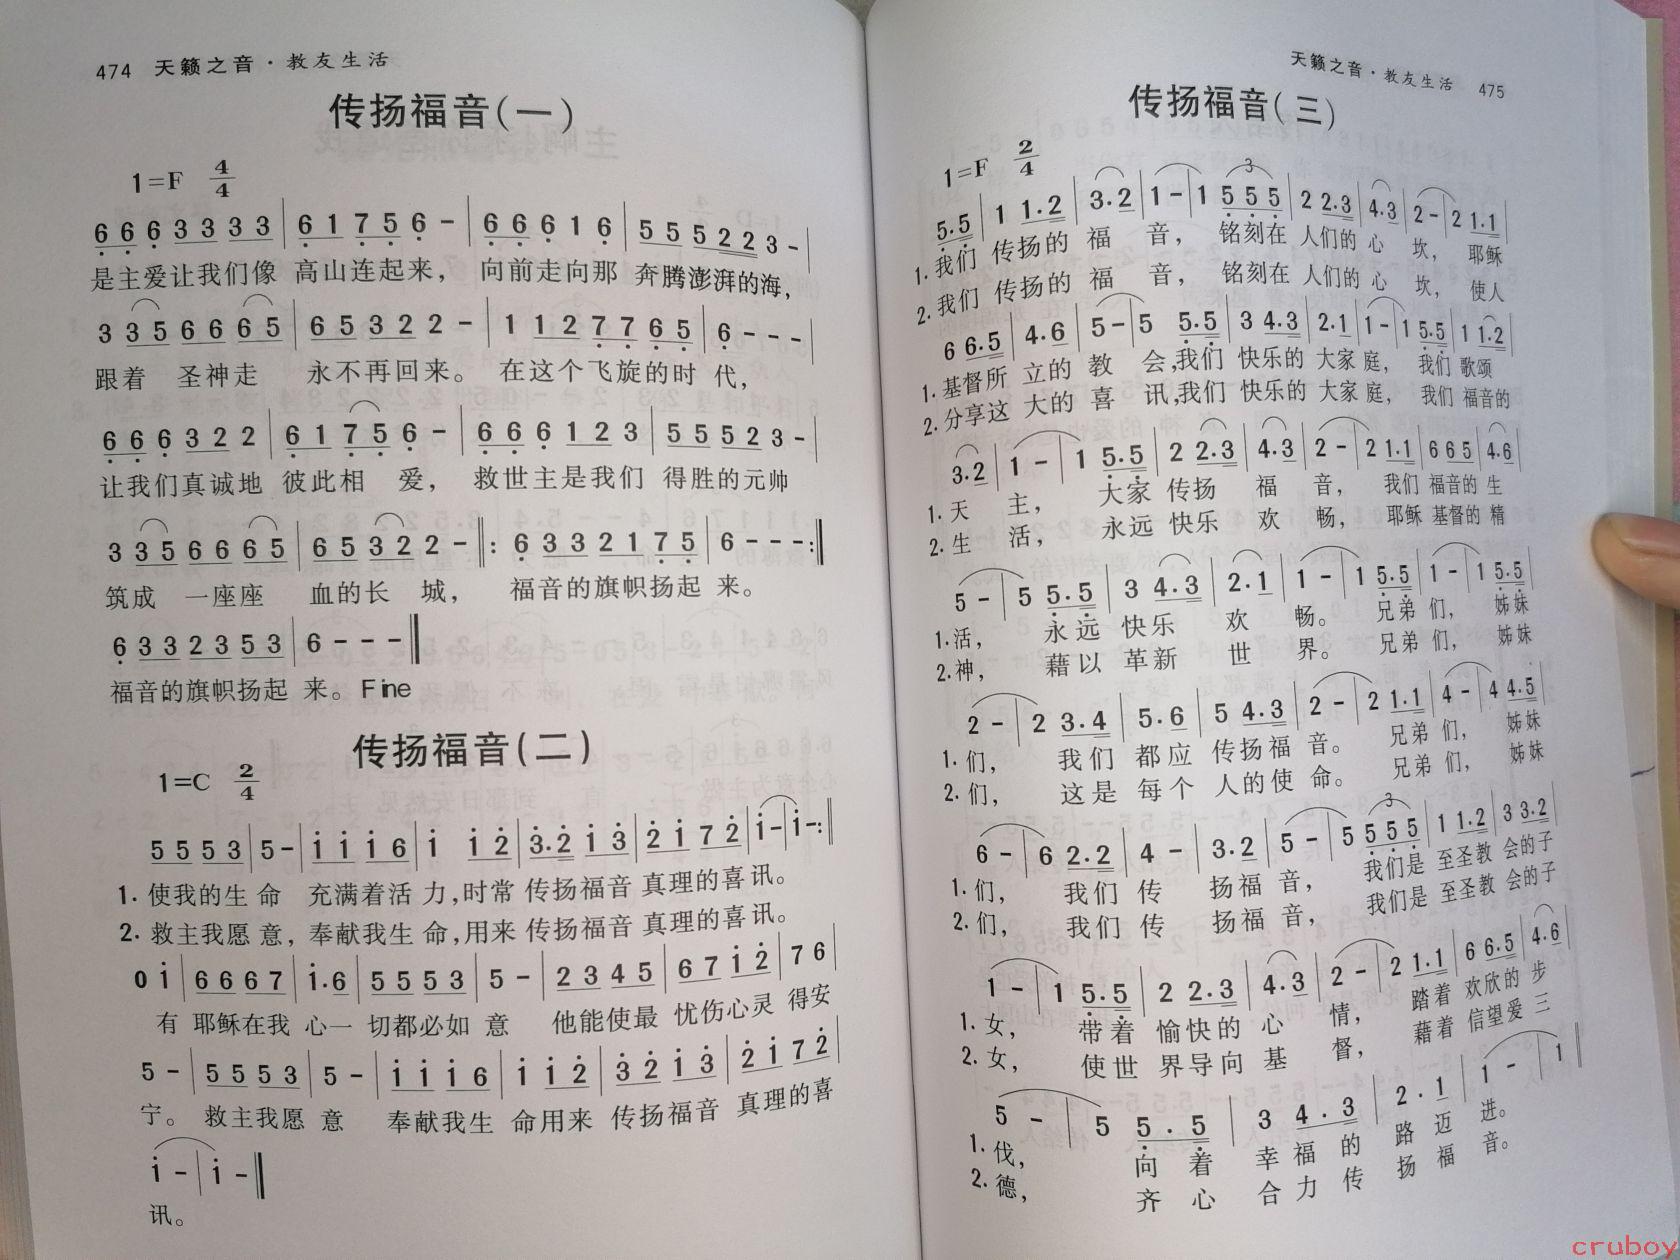 474 天籁之音·教友生活
传扬福音(一)
1=F 4/4
6 6 6 3 3 3 3 | 6 1 7 5 6 - | 6 6 6 1 6 | 5 5 5 2 2 3 - |
是主爱让我们像 高山连起来， 向前走向那 奔腾澎湃的海，
3 3 5 6 6 6 5 | 6 5 3 2 2 - | 1 1 2 7 7 6 5 | 6 - - - |
跟着 圣神走 永不再回来。 在这个飞旋的时 代，
6 6 6 3 2 2 | 6 1 7 5 6 - | 6 6 6 1 2 3 | 5 5 5 2 3 - |
让我们真诚地 彼此相 爱， 救世主是我们 得胜的元帅
3 3 5 6 6 6 5 | 6 5 3 2 2 - :‖ 6 3 3 2 1 7 5 | 6 - - - :‖
筑成 一座座 血的长 城， 福音的旗帜扬起 来。
6 3 3 2 3 5 3 | 6 - - - ‖
福音的旗帜扬起 来。Fine
传扬福音(二)
1=C 2/4
5 5 5 3 | 5 - | i i i 6 | i i 2 | 3·2 i 3 | 2 i 7 2 | i - | i - :‖
1. 使我的生 命 充满着活 力,时常 传扬福音 真理的喜讯。
2. 救主我愿 意，奉献我生 命,用来 传扬福音 真理的喜讯。
0 i | 6 6 6 7 | i·6 | 5 5 5 3 | 5 - | 2 3 4 5 | 6 7 i 2 | 7 6 |
有 耶稣在我 心一 切都必如 意 他能使最 忧伤心灵 得安
5 - | 5 5 5 3 | 5 - | i i i 6 | i i 2 | 3 2 i 3 | 2 i 7 2 |
宁。 救主我愿 意 奉献我生 命用来 传扬福音 真理的喜
i - | i - ‖
讯。
天籁之音·教友生活 475
传扬福音(三)
1=F 2/4
5·5 | 1 1·2 | 3·2 | 1 - | 1 5 5 5 | 2 2·3 | 4·3 | 2 - | 2 1·1 |
1. 我们 传扬的 福 音， 铭刻在 人们的 心 坎， 耶稣
2. 我们 传扬的 福 音， 铭刻在 人们的 心 坎， 使人
6 6·5 | 4·6 | 5 - | 5 5·5 | 3 4·3 | 2·1 | 1 - | 1 5·5 | 1 1·2 |
1. 基督所 立的 教 会,我们 快乐的 大家 庭， 我们 歌颂
2. 分享这 大的 喜 讯,我们 快乐的 大家 庭， 我们 福音的
3·2 | 1 - | 1 5·5 | 2 2·3 | 4·3 | 2 - | 2 1·1 | 6 6 5 | 4·6 |
1. 天 主， 大家 传扬 福 音， 我们 福音的 生
2. 生 活， 永远 快乐 欢 畅， 耶稣 基督的 精
5 - | 5 5·5 | 3 4·3 | 2·1 | 1 - | 1 5·5 | 1 - | 1 5·5 |
1. 活， 永远 快乐 欢 畅。 兄弟 们， 姊妹
2. 神， 藉以 革新 世 界。 兄弟 们， 姊妹
2 - | 2 3·4 | 5·6 | 5 4·3 | 2 - | 2 1·1 | 4 - | 4 4·5 |
1. 们， 我们 都应 传扬福 音。 兄弟 们， 姊妹
2. 们， 这是 每个 人的使 命。 兄弟 们， 姊妹
6 - | 6 2·2 | 4 - | 3·2 | 5 - | 5 5 5 5 | 1 1·2 | 3 3·2 |
1. 们， 我们 传 扬福 音， 我们是 至圣教 会的子
2. 们， 我们 传 扬福 音， 我们是 至圣教 会的子
1 - | 1 5·5 | 2 2·3 | 4·3 | 2 - | 2 1·1 | 6 6·5 | 4·6 |
1. 女， 带着 愉快的 心 情， 踏着 欢欣的 步
2. 女， 使世 界导向 基 督， 藉着 信望爱 三
5 - | 5 5·5 | 3 4·3 | 2·1 | 1 - | 1 ‖
1. 伐， 向着 幸福的 路迈 进。
2. 德， 齐心 合力传 扬福 音。
cruboy